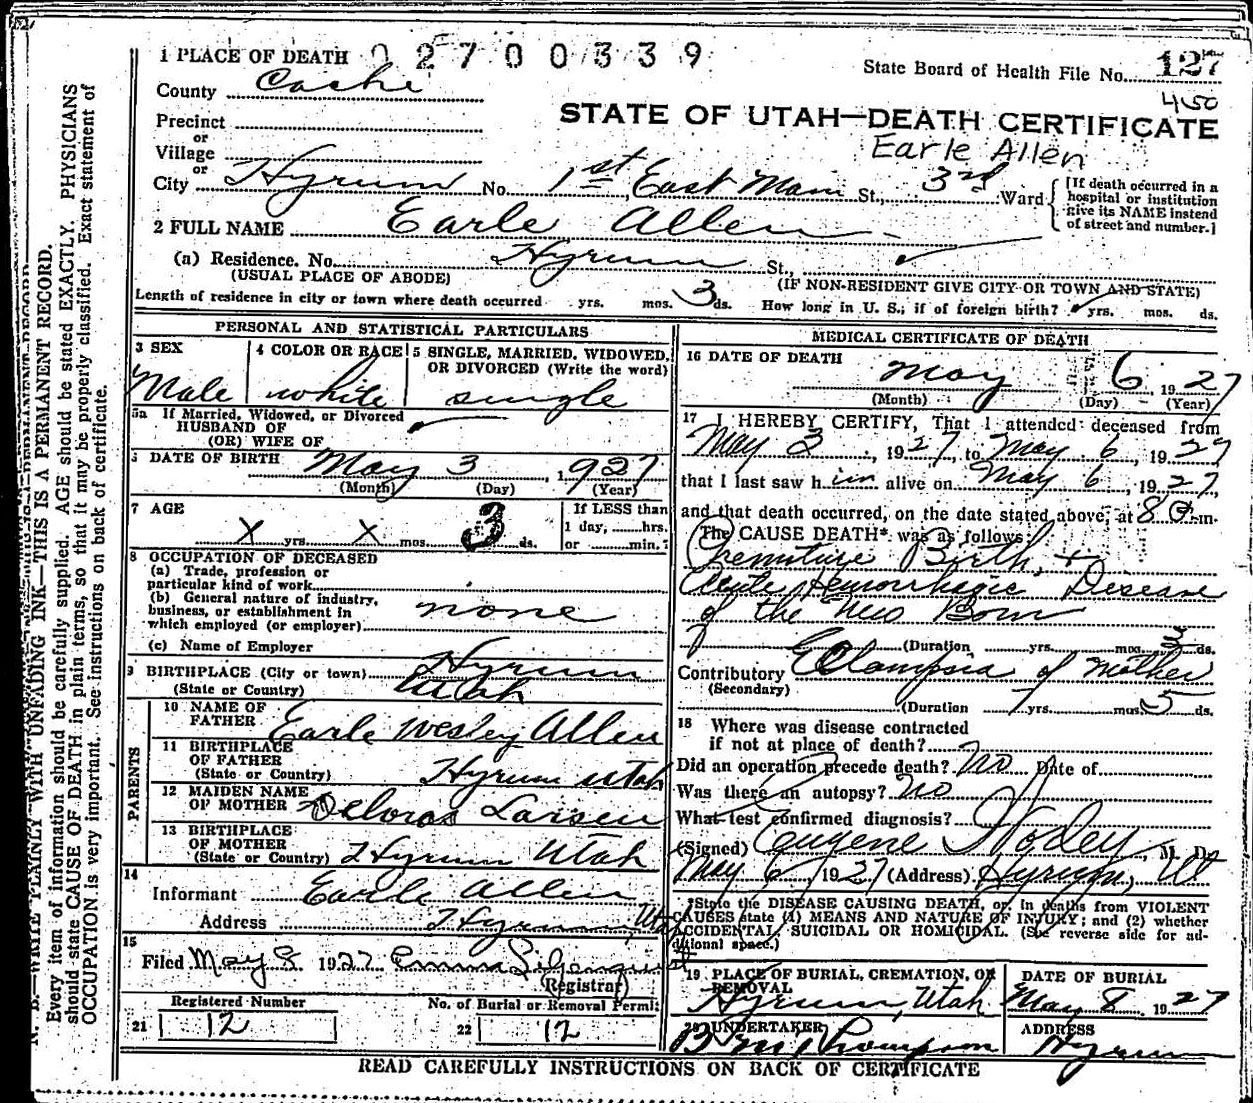 1 PLACE OF DEATH 02700339
State Board of Health File No. 127
450
County Cache
STATE OF UTAH—DEATH CERTIFICATE
Precinct
or
Village
or
Earle Allen
City Hyrum No. 1st East Main St., 3rd Ward
[If death occurred in a
hospital or institution
give its NAME instend
of street and number.]
2 FULL NAME Earle Allen
(a) Residence. No. Hyrum St.,
(USUAL PLACE OF ABODE) (IF NON-RESIDENT GIVE CITY OR TOWN AND STATE)
Length of residence in city or town where death occurred yrs. mos. 3 ds. How long in U. S.; if of foreign birth? yrs. mos. ds.
PERSONAL AND STATISTICAL PARTICULARS
3 SEX 4 COLOR OR RACE 5 SINGLE, MARRIED, WIDOWED,
OR DIVORCED (Write the word)
Male white single
5a If Married, Widowed, or Divorced
HUSBAND OF
(OR) WIFE OF
DATE OF BIRTH May 3, 1927
(Month) (Day) (Year)
7 AGE If LESS than
1 day, hrs.
X yrs. X mos. 3 ds. or min.?
8 OCCUPATION OF DECEASED
(a) Trade, profession or
particular kind of work
(b) General nature of industry,
business, or establishment in
which employed (or employer) none
(c) Name of Employer
9 BIRTHPLACE (City or town) Hyrum
(State or Country) Utah
PARENTS
10 NAME OF
FATHER Earle Wesley Allen
11 BIRTHPLACE
OF FATHER
(State or Country) Hyrum Utah
12 MAIDEN NAME
OF MOTHER Deloras Larsen
13 BIRTHPLACE
OF MOTHER
(State or Country) Hyrum Utah
14
Informant Earle Allen
Address Hyrum, Utah
15
Filed May 8 1927 Emma
(Registrar)
Registered Number No. of Burial or Removal Permit
21 12 22 12
MEDICAL CERTIFICATE OF DEATH
16 DATE OF DEATH May 6 1927
(Month) (Day) (Year)
17 I HEREBY CERTIFY, That I attended deceased from
May 3, 1927, to May 6, 1927
that I last saw him alive on May 6, 1927,
and that death occurred, on the date stated above, at 8 m.
The CAUSE DEATH* was as follows:
Premiture Birth, +
Acute Hemorrhagic Disease
of the New Born
(Duration, yrs. mos. 3 ds.
Contributory Eclampsia of Mother
(Secondary)
(Duration yrs. mos. 5 ds.
18 Where was disease contracted
if not at place of death?
Did an operation precede death? No Date of
Was there an autopsy? No
What test confirmed diagnosis?
(Signed) Eugene Worley, M. D.
May 6, 1927 (Address) Hyrum, Ut
*State the DISEASE CAUSING DEATH, or, in deaths from VIOLENT
CAUSES state (1) MEANS AND NATURE OF INJURY; and (2) whether
ACCIDENTAL, SUICIDAL OR HOMICIDAL. (See reverse side for ad-
ditional space.)
19 PLACE OF BURIAL, CREMATION, OR
REMOVAL DATE OF BURIAL
Hyrum, Utah May 8 1927
20 UNDERTAKER ADDRESS
B M Thompson Hyrum
READ CAREFULLY INSTRUCTIONS ON BACK OF CERTIFICATE
N. B.—WRITE PLAINLY WITH UNFADING INK—THIS IS A PERMANENT RECORD.
Every item of information should be carefully supplied. AGE should be stated EXACTLY. PHYSICIANS
should state CAUSE OF DEATH in plain terms, so that it may be properly classified. Exact statement of
OCCUPATION is very important. See instructions on back of certificate.